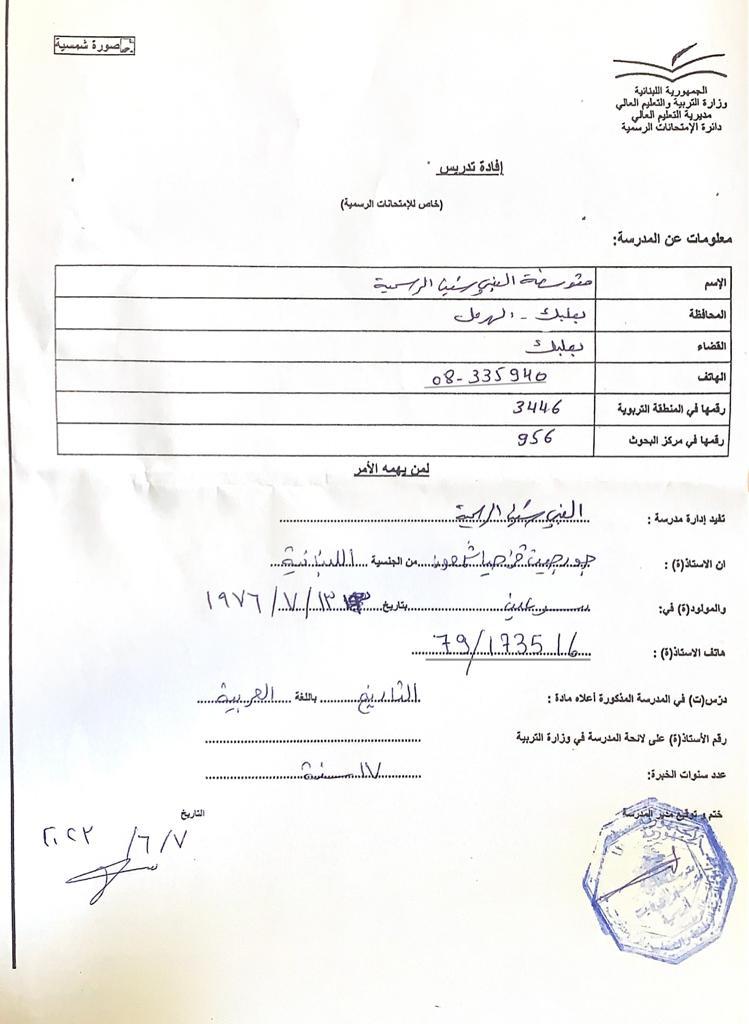 صورة شمسية
الجمهورية اللبنانية
وزارة التربية والتعليم العالي
مديرية التعليم العالي
دائرة الإمتحانات الرسمية
إفادة تدريس
(خاص للإمتحانات الرسمية)
معلومات عن المدرسة:
الإسم متوسطة النبي رشيدا الرسمية
المحافظة بعلبك - الهرمل
القضاء بعلبك
الهاتف 08-335940
رقمها في المنطقة التربوية 3446
رقمها في مركز البحوث 956
لمن يهمه الأمر
تفيد إدارة مدرسة : النبي الرسمية
ان الاستاذ(ة) : جورجيت شمعون من الجنسية اللبنانية
والمولود(ة) في: بتاريخ ١٣/٧/١٩٧٦
هاتف الاستاذ(ة) : 79/173516
درّس(ت) في المدرسة المذكورة أعلاه مادة : التاريخ باللغة العربية
رقم الأستاذ(ة) على لائحة المدرسة في وزارة التربية
عدد سنوات الخبرة: ١٧ سنة
ختم و توقيع مدير المدرسة التاريخ
٧/٦/٢٠٢٢